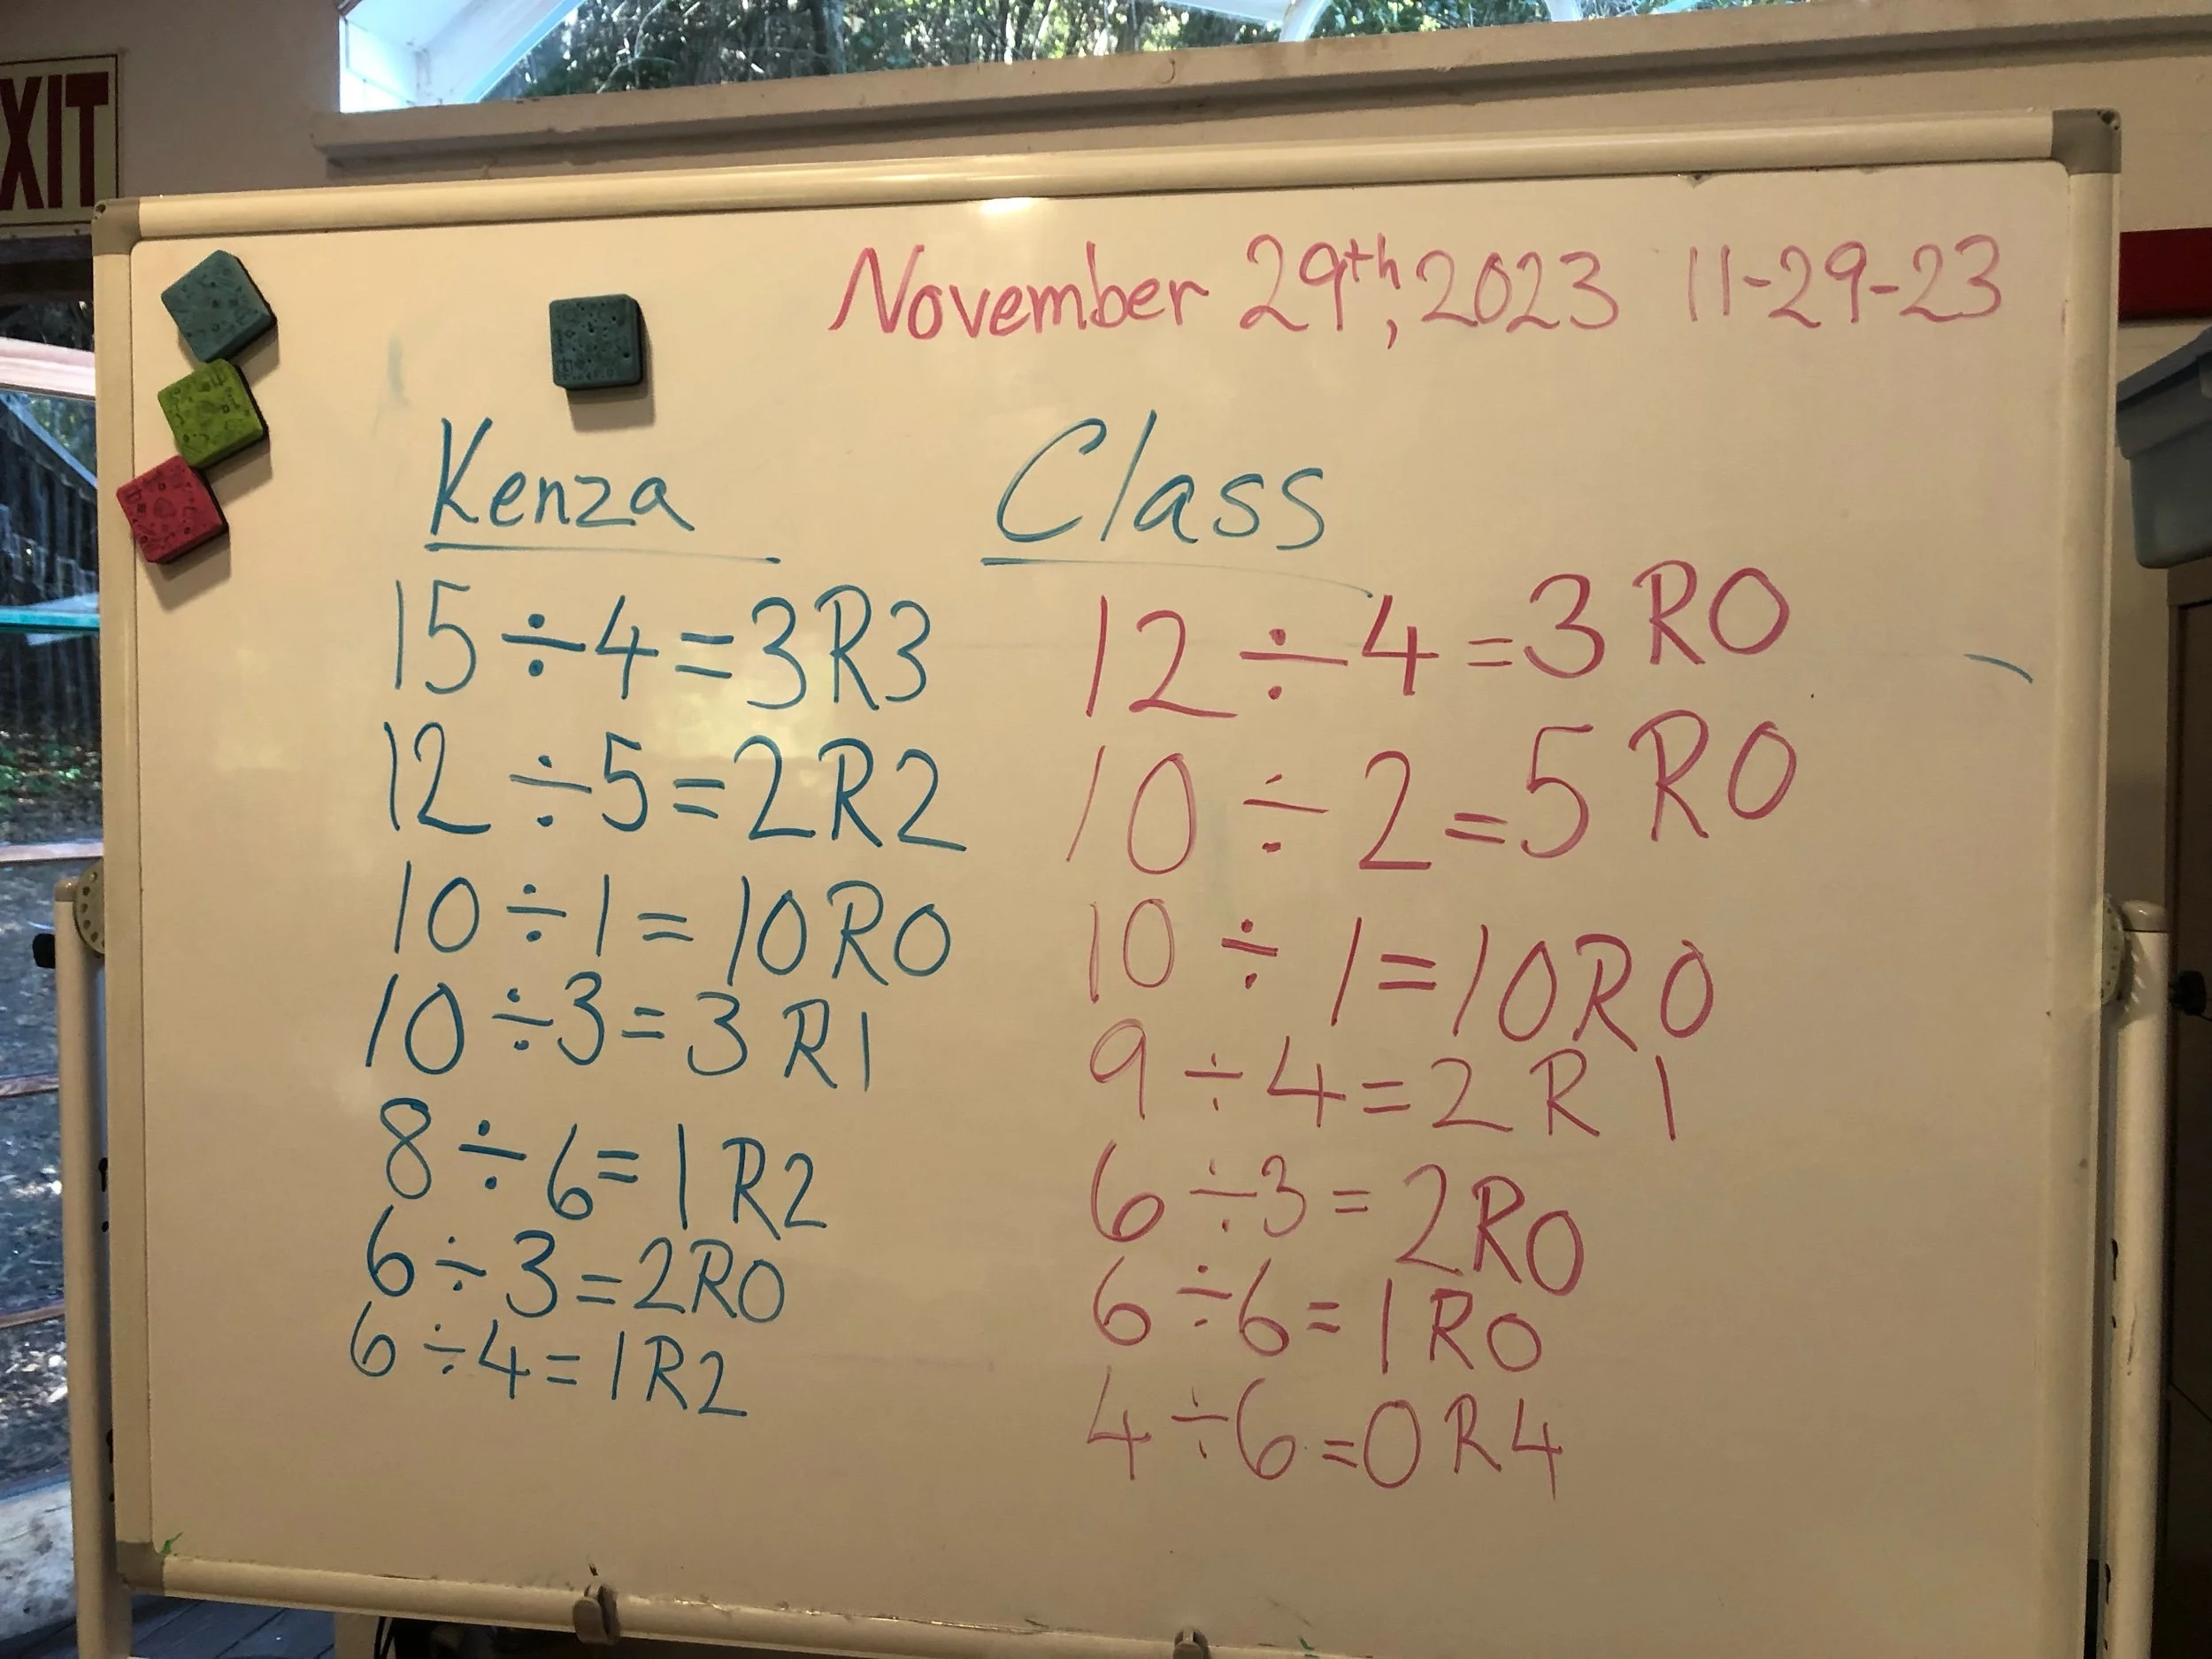 XIT
November 29th, 2023 11-29-23
Kenza
15 ÷ 4 = 3R3
12 ÷ 5 = 2R2
10 ÷ 1 = 10R0
10 ÷ 3 = 3 R1
8 ÷ 6 = 1 R2
6 ÷ 3 = 2R0
6 ÷ 4 = 1R2
Class
12 ÷ 4 = 3 R0
10 ÷ 2 = 5 R0
10 ÷ 1 = 10R0
9 ÷ 4 = 2 R 1
6 ÷ 3 = 2R0
6 ÷ 6 = 1 R0
4 ÷ 6 = 0 R4